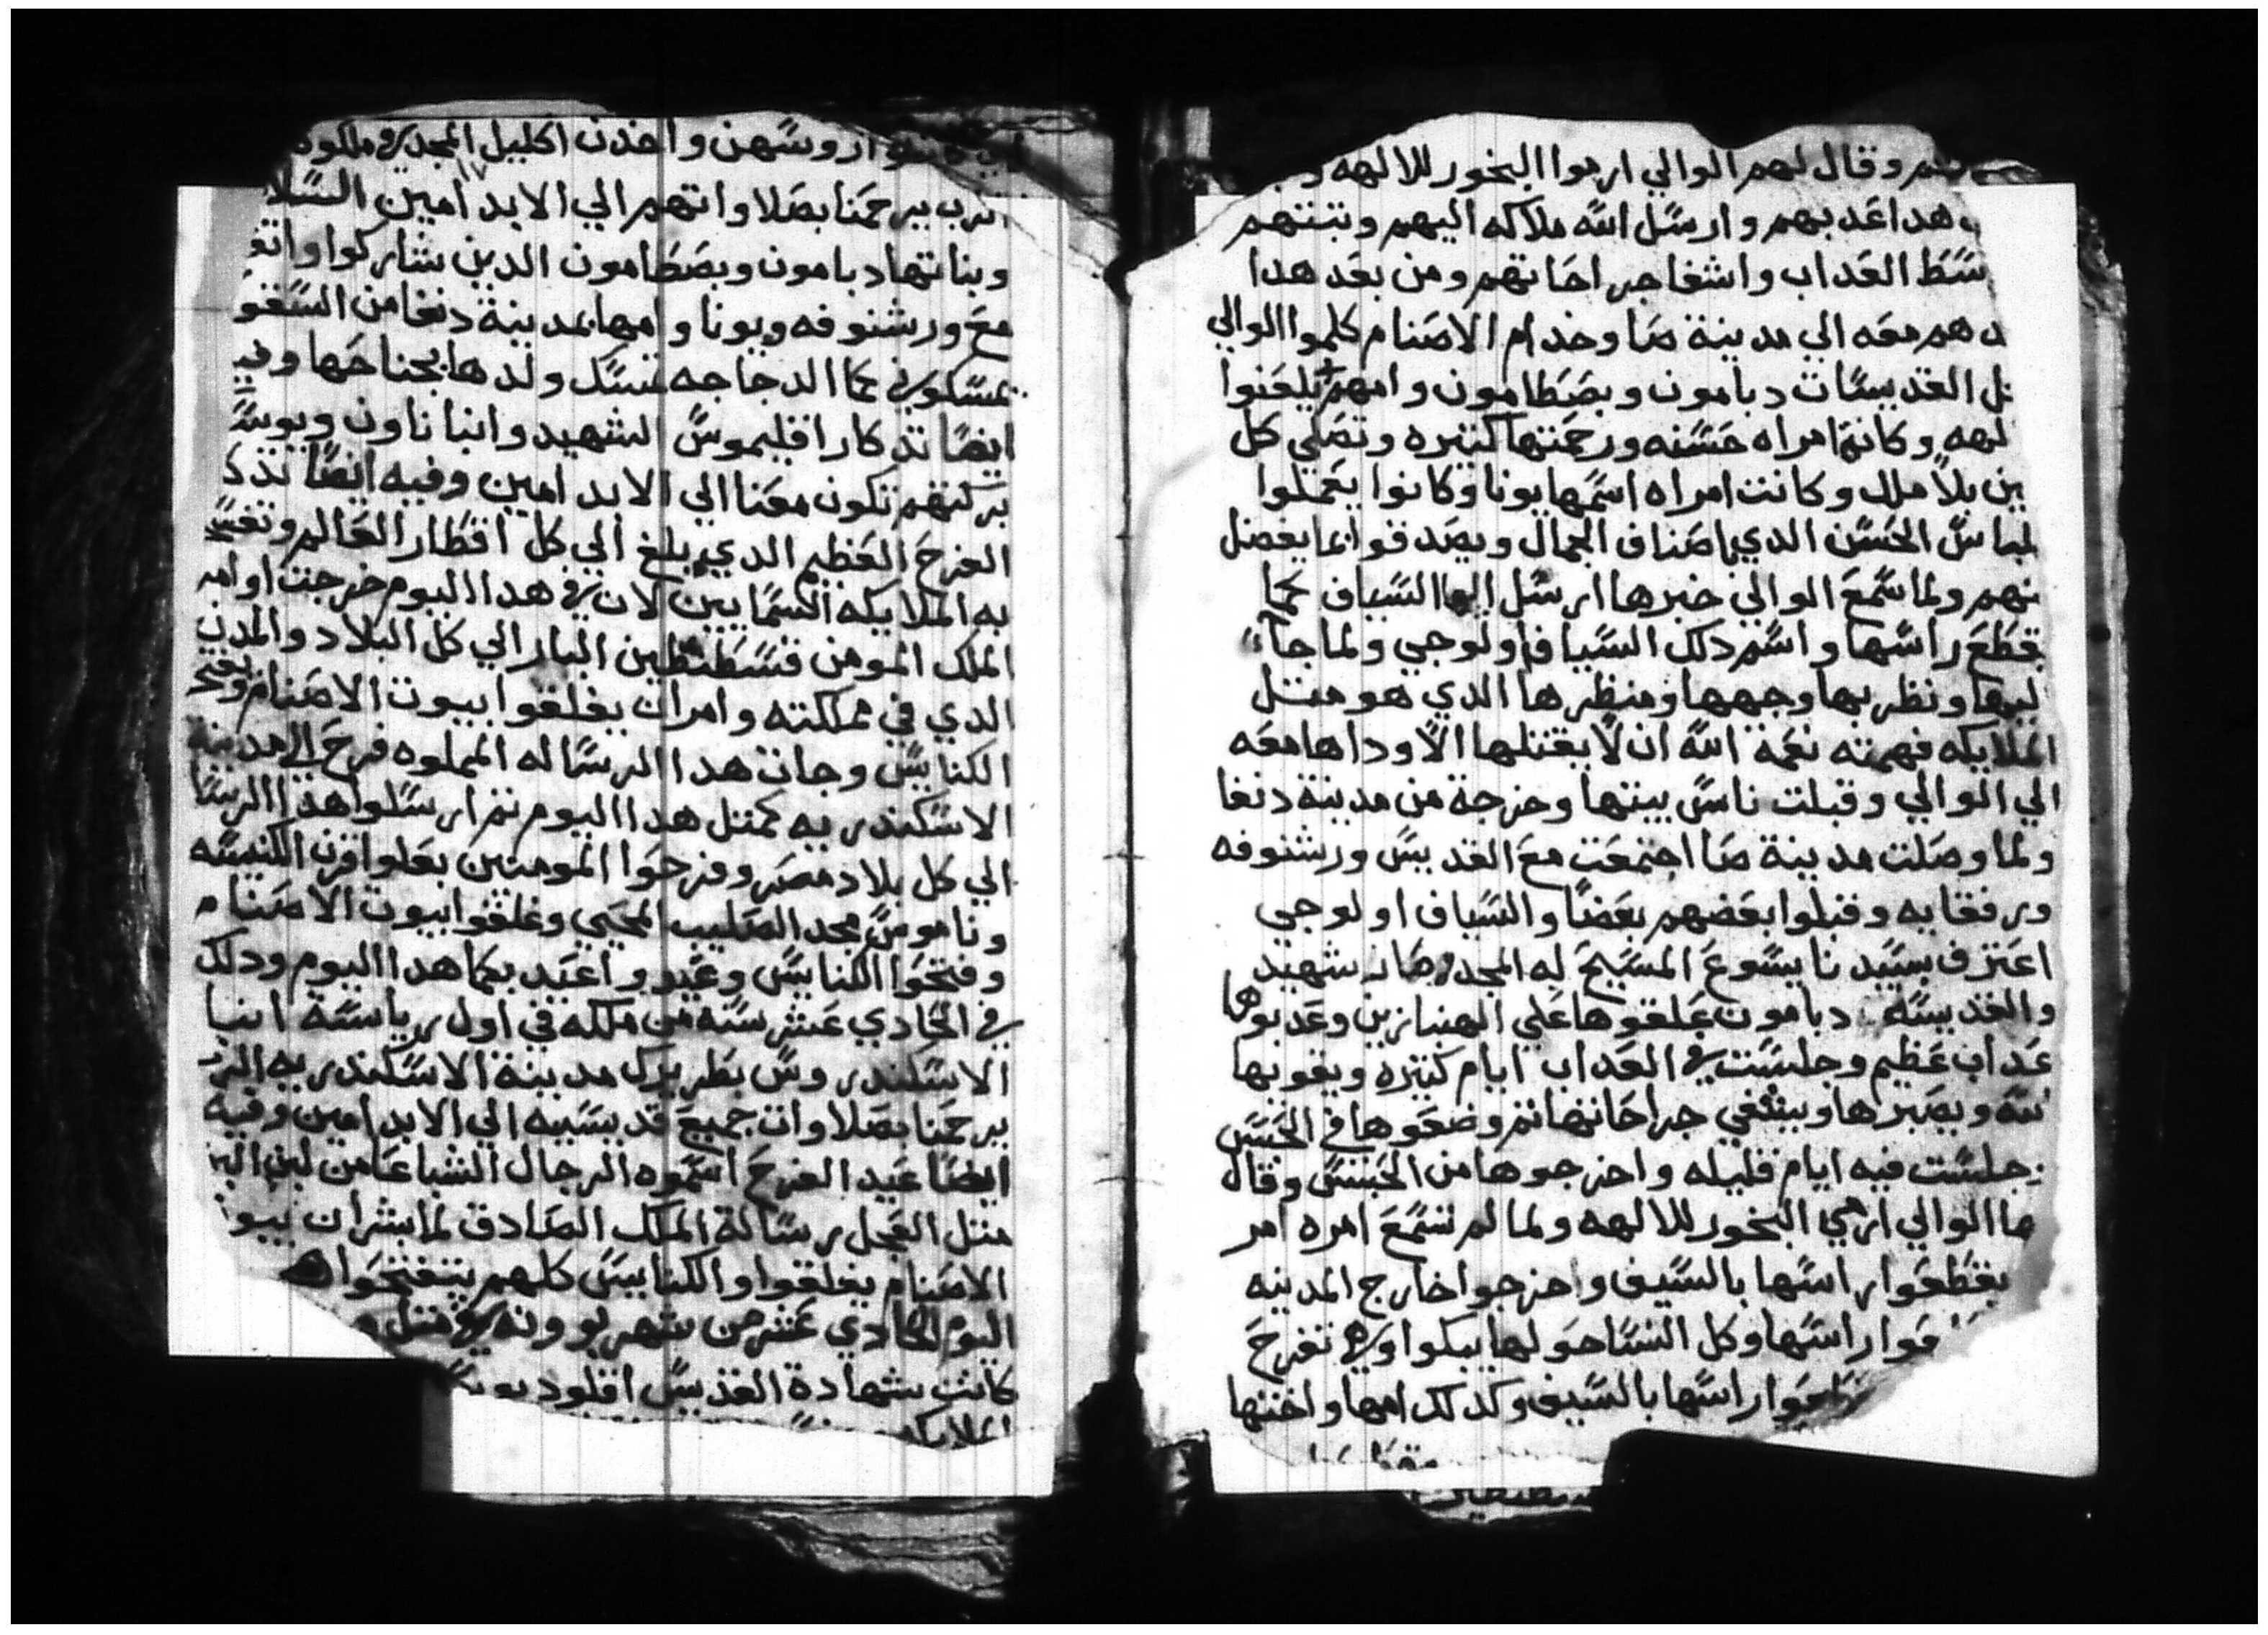 وقال لهم الوالي ارموا البخور للالهه
هدا اعدبهم وارسل الله ملاكه اليهم وتبتهم
سط العداب واشفا جراحاتهم ومن بعد هدا
هم معه الي مدينة صا وخدام الاصنام كلموا الوالي
القديسات دبامون وبصطامون وامهم يلعنوا
لهه وكانة امراه حسنه ورحمتها كتيره وتصلي كل
ين بلا ملل وكانت امراه اسمها يونا وكانوا يعملوا
لباس الحسن الدي اصناف الجمال ويصدقوا بما يفضل
نهم ولما سمع الوالي خبرها ارسل السياف كما
يقطع راسها واسم دلك السياف اولوجي ولما جاء
ليها ونظر بها وجهها ومنظرها الدي هو متل
الملايكه فهمته نعمة الله ان لا يقتلها الا وداها معه
الي الوالي وقبلت ناس بيتها وخرجة من مدينة دنغا
ولما وصلت مدينة صا اجتمعت مع القديس ورشنوفه
ورفقايه وقبلوا بعضهم بعضا والسياف اولوجي
اعترف بسيدنا يسوع المسيح له المجد صار شهيد
والقديسه دبامون علقوها علي الهنبازين وعدبوها
عداب عظيم وجلست في العداب ايام كتيره ويقويها
ويصبرها ويشفي جراحاتها تم وضعوها في الحبس
جلست فيه ايام قليله واخرجوها من الحبس وقال
الوالي ارمي البخور للالهه ولما لم تسمع امره امر
يقطعوا راسها بالسيف واخرجوا خارج المدينه
راسها وكل النسا حولها يبكوا وهي تفرح
راسها بالسيف وكدلك امها واختها
روسهن واخدن اكليل المجد في ملكوه
الرب يرحمنا بصلاواتهم الي الابد امين السلا
وبناتها دبامون وبصطامون الدين شاركوا واتف
مع ورشنوفه ويونا وامها بمدينة دنغا من السفو
يمسكو كما الدجاجه تمسك ولدها بجناحها وفي
ايضا تدكار اقليموس الشهيد وانبا ناون ويوس
بركتهم تكون معنا الي الابد امين وفيه ايضا تدك
الفرح العظيم الدي بلغ الي كل اقطار العالم
به الملايكه السمايين لان في هدا اليوم خرجت اوامر
الملك المومن قسطنطين البار الي كل البلاد والمدن
الدي في مملكته وامر ان يغلقوا بيوت الاصنام وتفتح
الكنايس وجات هدا الرساله المملوه فرح الي مدينة
الاسكندريه كمتل هدا اليوم تم ارسلوا هدا الرسا
الي كل بلاد مصر وفرحوا المومنين بعلوا قرن الكنيسه
وناموس مجد الصليب المحيي وغلقوا بيوت الاصنام
وفتحوا الكنايس وعيدو واعيد بكما هدا اليوم ودلك
في الحادي عشر سنه من ملكه في اول رياسة انبا
الاسكندروس بطريرك مدينة الاسكندريه الرب
يرحمنا بصلاوات جميع قديسيه الي الابد امين وفيه
ايضا عيد الفرح اسموه الرجال الشباعا من لبن البز
متل العجل رسالة الملك الصادق لما بشر ان بيو
الاصنام يغلقوا والكنايس كلهم يتفتحوا
اليوم الحادي عشر من شهر بوونه في متل
كانت شهادة القديس اقلوديوس